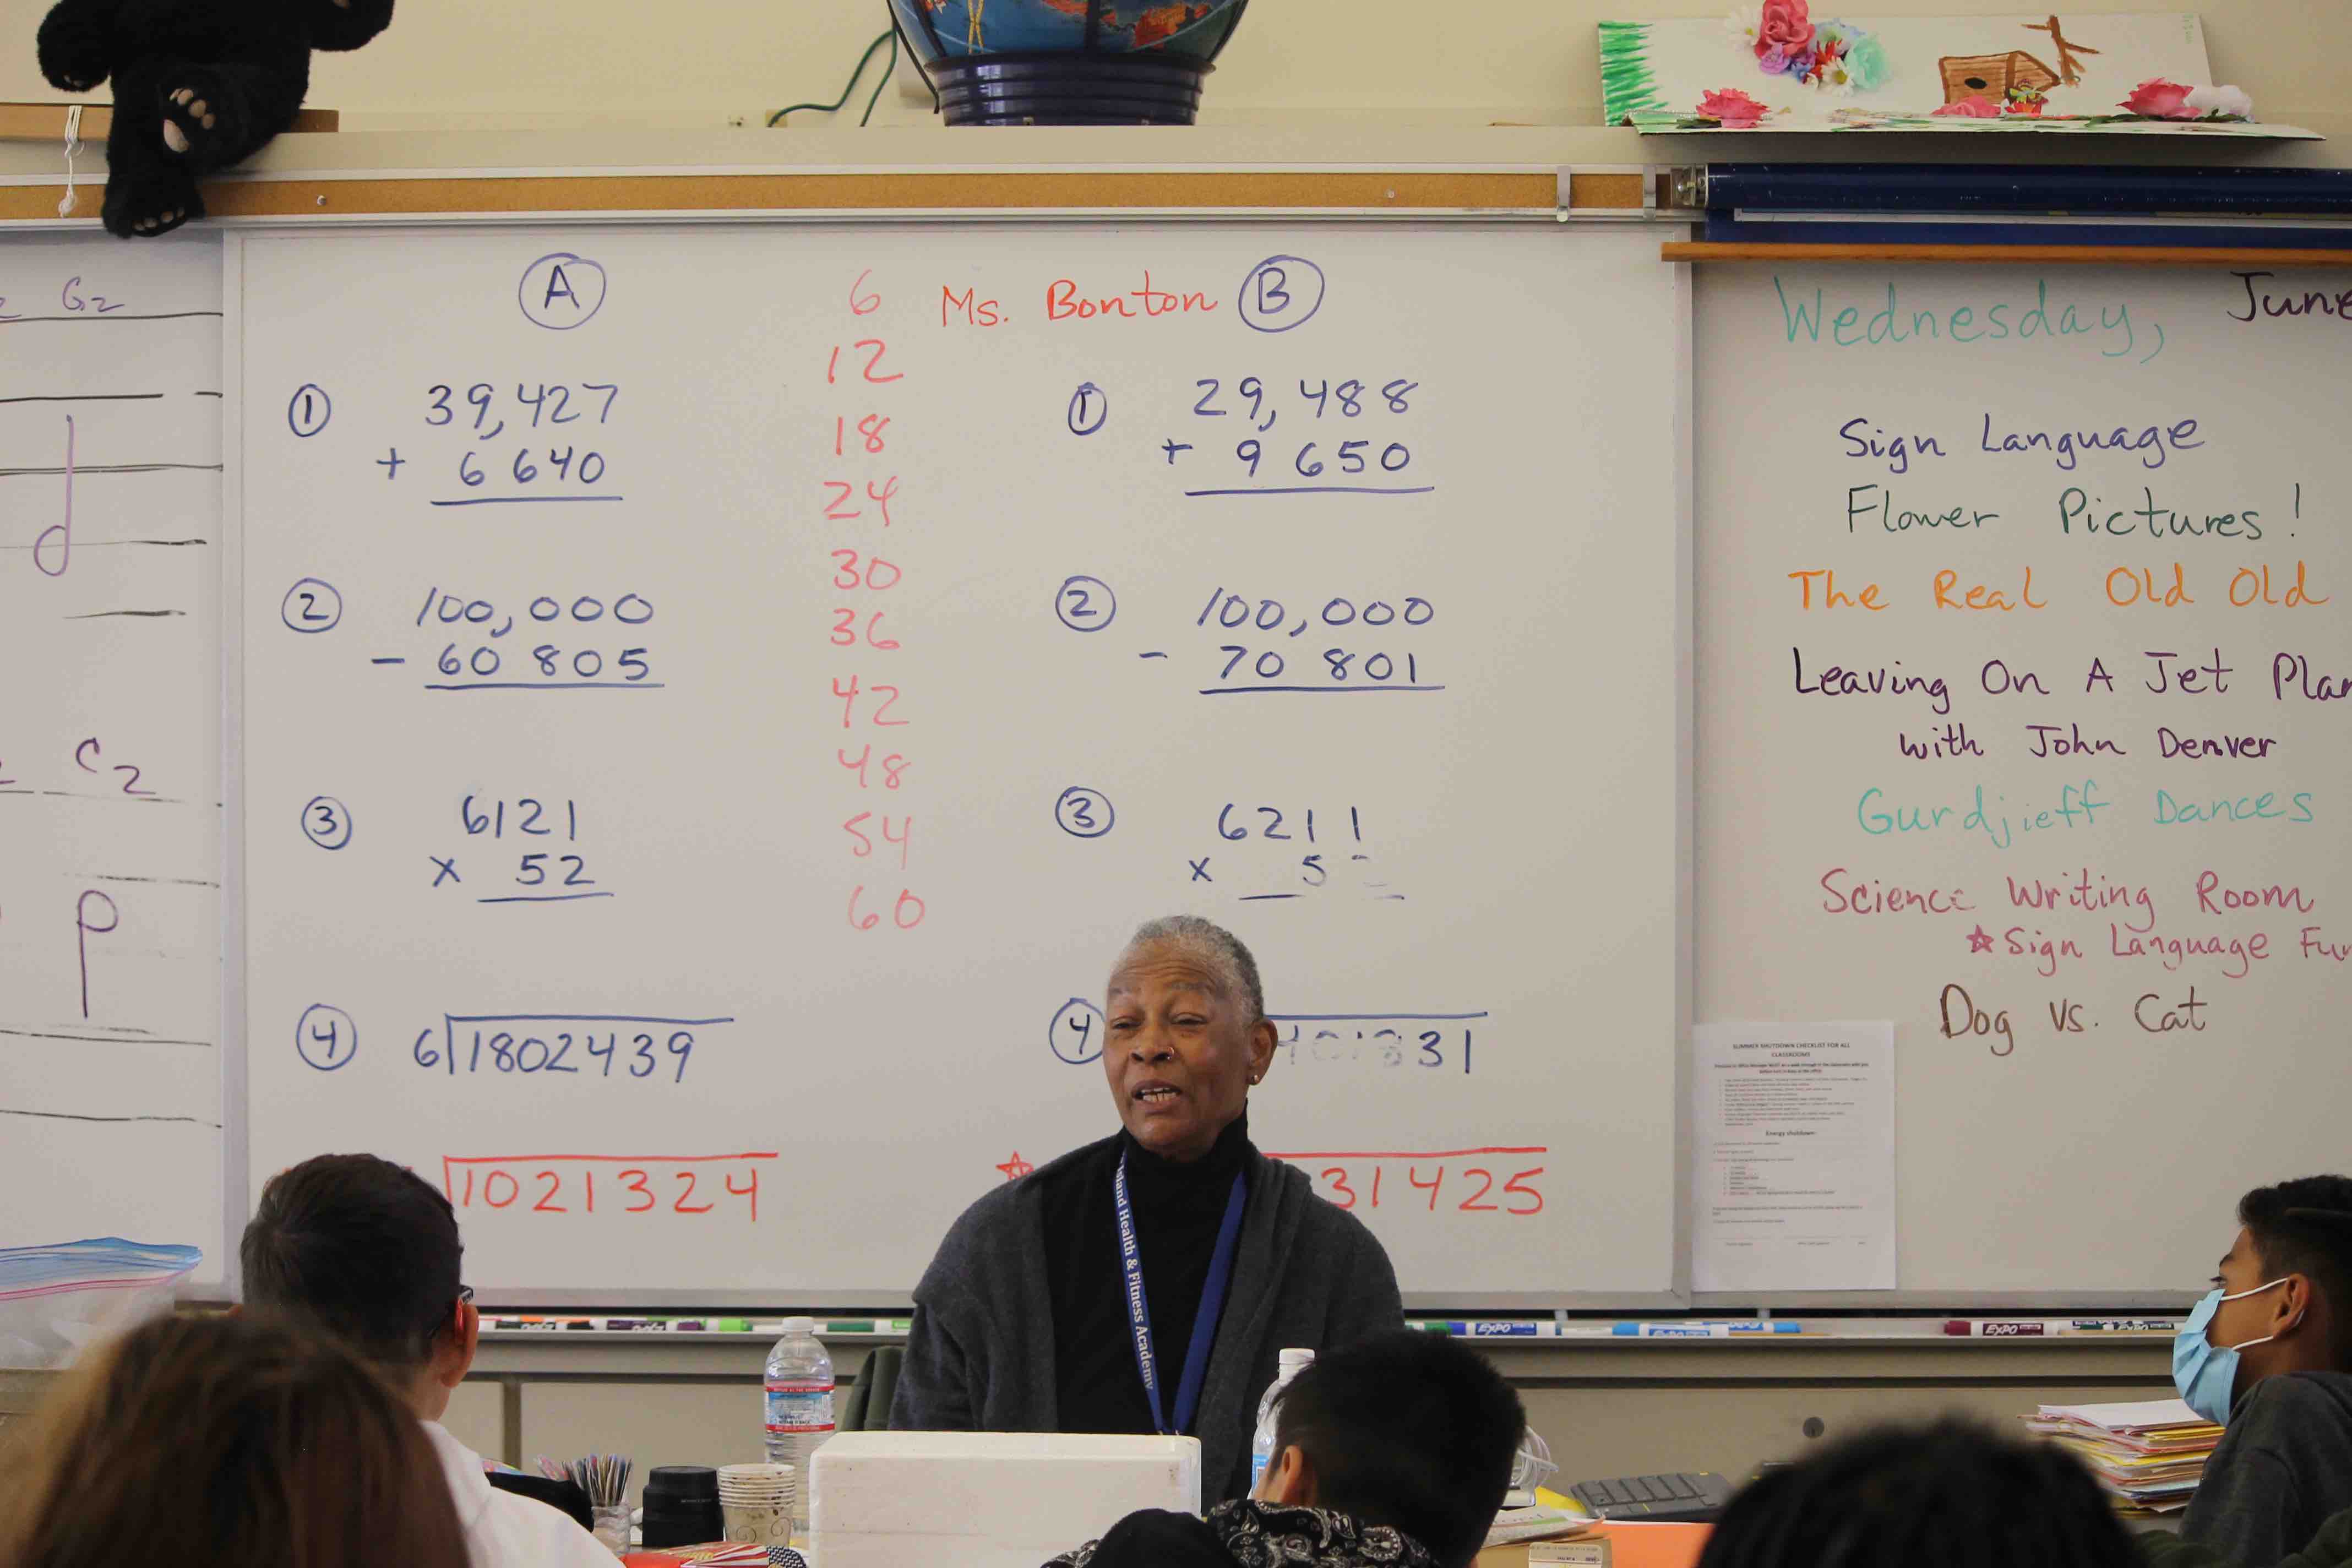 G2
C2
A
6
Ms. Bonton
B
12
18
24
30
36
42
48
54
60
1
39,427
+ 6 640
2
100,000
- 60 805
3
6121
x 52
4
6 1802439
1021324
1
29,488
+ 9 650
2
100,000
- 70 801
3
6211
x 5
4
31
☆
31425
Wednesday, June
Sign Language
Flower Pictures!
The Real Old Old
Leaving On A Jet Plan
with John Denver
Gurdjieff Dances
Science Writing Room
☆ Sign Language Fun
Dog vs. Cat
SUMMER SHUTDOWN CHECKLIST FOR ALL
CLASSROOMS
Energy shutdown
Island Health & Fitness Academy
EXPO
EXPO
EXPO
EXPO